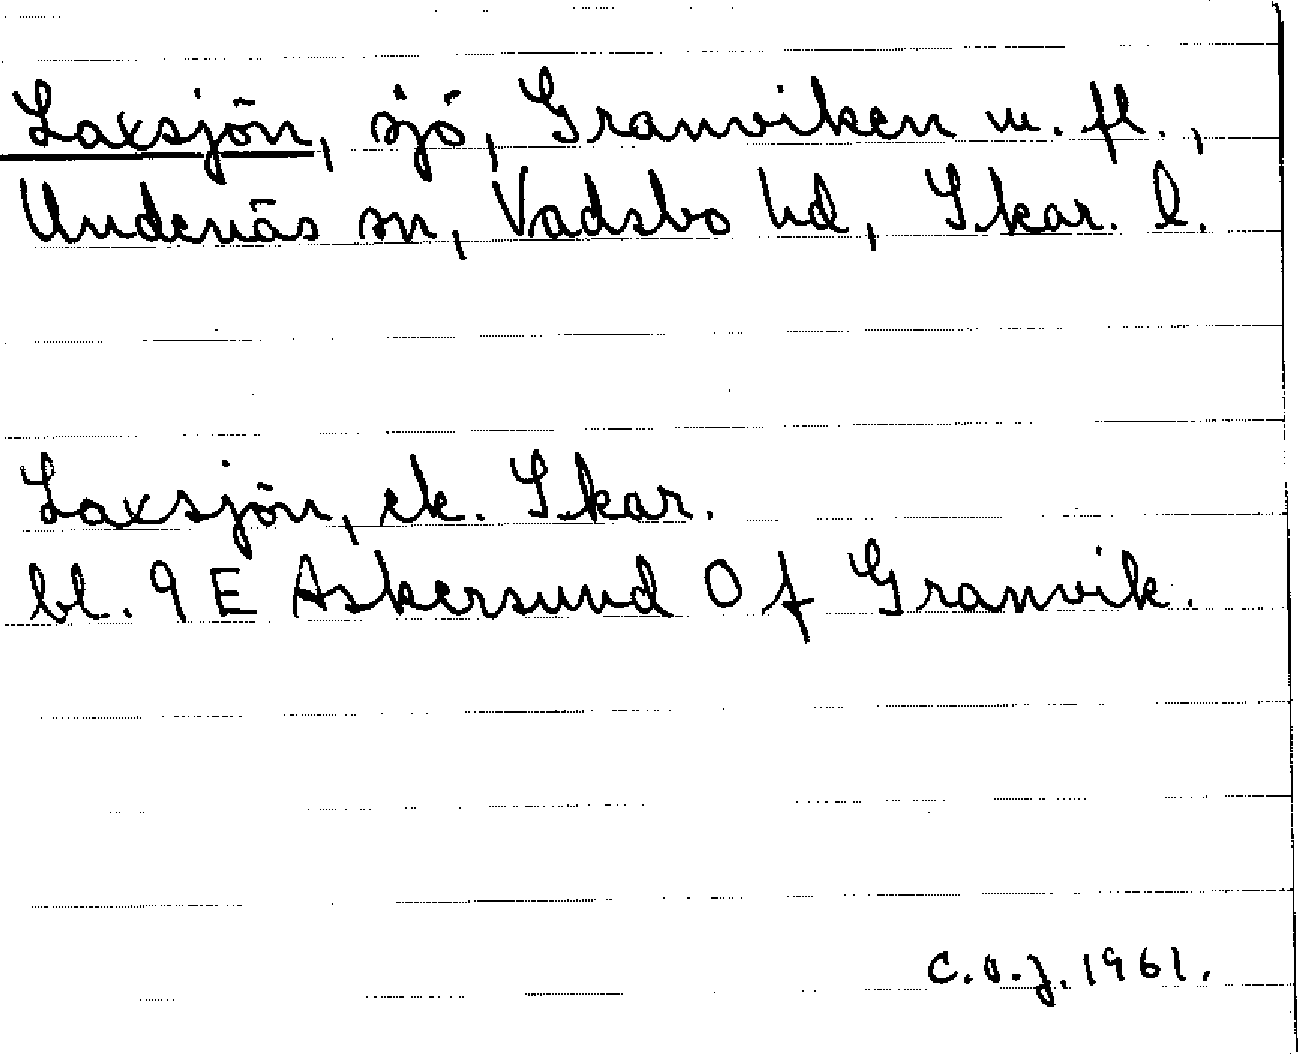 Laxsjön, sjö, Granviken m. fl.,
Undenäs sn, Vadsbo hd, Skar. l.
Laxsjön, ek. Skar.
bl. 9 E Askersund O f Granvik.
C.O.J. 1961.